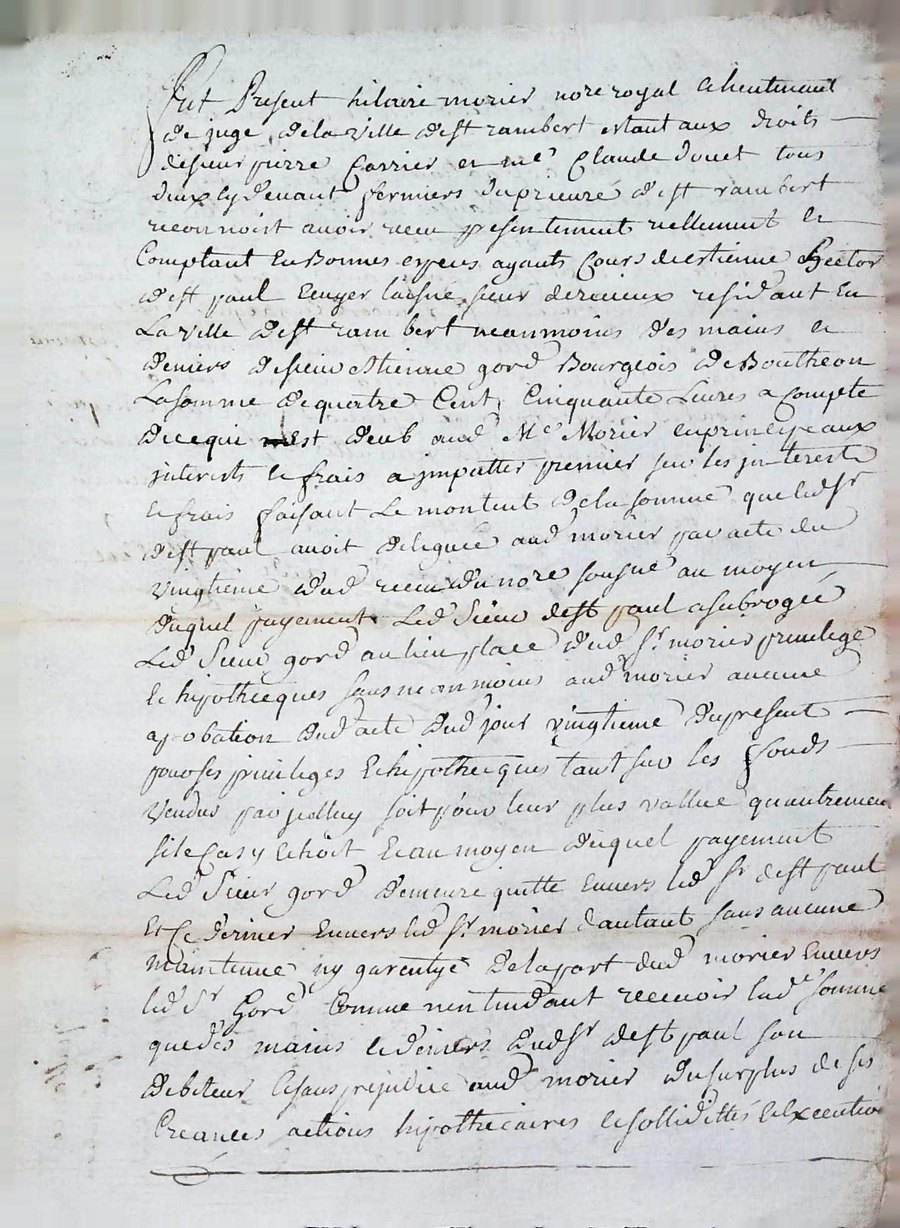 fut Present hilaire morier nore royal & lieutenant
de juge de la ville de st rambert estant aux droits
de sieur pierre Carrier et me Claude Douet tous
deux cy devant fermiers du prieuré de st rambert
reconnoist avoir receu presentement reellement et
Comptant en Bonnes especes ayants Cours de estienne Hector
de st paul escuyer sieur de residant en
La ville de st rambert neanmoins des mains et
deniers de sieur etienne gord Bourgeois de Boutheon
La somme de quattre Cent Cinquante Livres a Compte
de ce qui est deub aud Me Morier en principeaux
interests & frais a imputter premier sur les interests
& frais faisant Le montent de la somme que led sr
de st paul avoit deleguée aud morier par acte du
vingtieme dud receu du nore sousné au moyen
duquel payement Led Sieur de st paul a subrogée
Led Sieur gord au lieu place dud sr morier privilege
& hipothecques sans neanmoins aud morier aucune
aprobation dud acte dud jour vingtieme du present
pour ses privileges & hipothecques tant sur les fonds
vendus par jcelluy soit pour leur plus vallue qu'autrement
si le Cas y echoit & au moyen duquel payement
Led Sieur gord demeure quitte envers led sr de st paul
Et Ce dernier envers led sr morier d'autant sans aucune
maintenue ny garentye de la part dud morier envers
led sr Gord Comme n'entendant recevoir lad somme
que des mains & deniers dud sr de st paul son
debiteur & sans prejudice aud morier du surplus de ses
Creances actions hipothecaires & sollidittés & execution